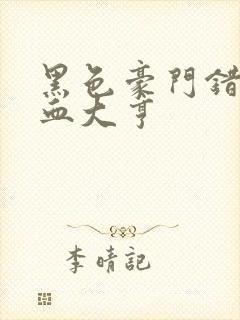 黑色豪門錯
血大亨
李晴記